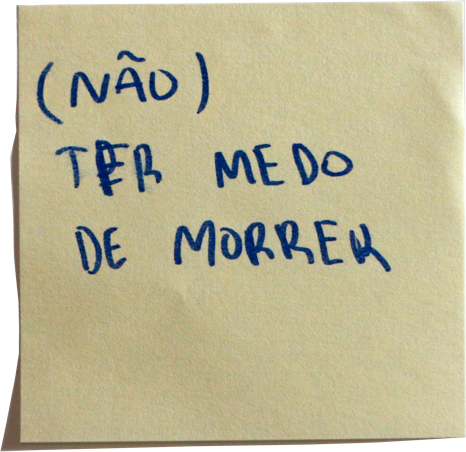 (NÃO)
TER MEDO
DE MORRER